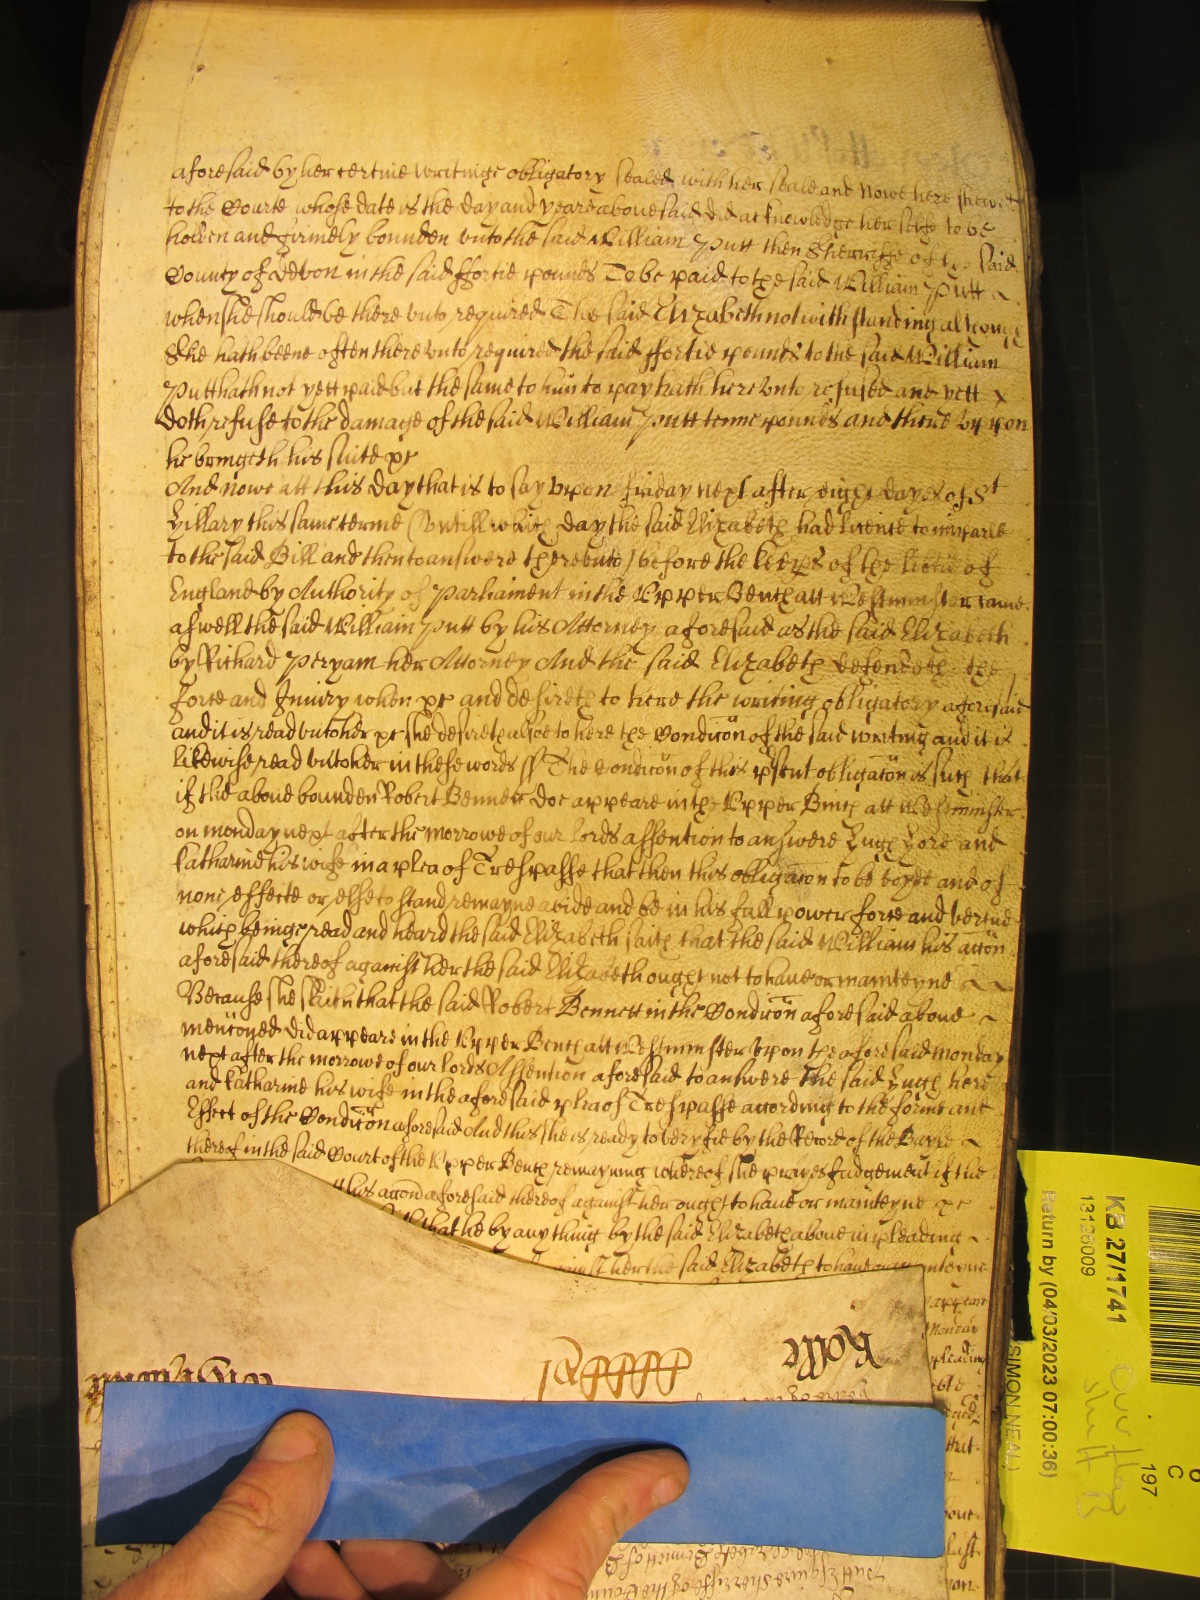 aforesaid by her certine writinge obligatory sealed with her seale and nowe here shewed
to the Courte whose date is the day and yeare abouesaid did acknowledge her selfe to be
holden and firmely bounden vnto the said William Putt then Sherriffe of the said
County of Devon in the said ffortie pounds To be paid to the said William Putt
when she should be there vnto required The said Elizabeth notwithstanding although
she hath beene often there vnto required the said ffortie pounds to the said William
Putt hath not yett paid but the same to him to pay hath here vnto refused and yett
doth refuse to the damage of the said William Putt tenne pounds and there vpon
he bringeth his suite &c
And nowe att this day that is to say vpon friday next after eight dayes of St
Hillary this same terme (vntill which day the said Elizabeth had licence to imparle
to the said Bill and then to answere therevnto) before the keeps of the libtie of
England by Authority of Parliament in the Vpper Bench att Westminster came
aswell the said William Putt by his Attorney aforesaid as the said Elizabeth
by Richard Peryam her Attorney And the said Elizabeth defendeth the
force and Iniury when &c and desireth to heere the writing obligatory aforesaid
and it is read vnto her &c she desireth alsoe to here the Condicōn of the said writing and it is
likewise read vnto her in these words ss The Condicōn of this psent obligatōn is such that
if the aboue bounden Robert Bennett doe appeare in the Vpper Bench att Westminster
on monday next after the morrowe of our lords assention to answere Hugh Hore and
Katharine his wife in a plea of Trespasse that then this obligacōn to be voyde and of
none effecte or else to stand remayne abide and be in his full power force and vertue
which beinge read and heard the said Elizabeth saith that the said William his accōn
aforesaid thereof against her the said Elizabeth ought not to haue or mainteyne
Because she saith that the said Robert Bennett in the Condicōn aforesaid aboue
mencōned did appeare in the Vpper Bench att Westminster vpon the aforesaid monday
next after the morrowe of our lords Assention aforesaid to answere the said Hugh Hore
and Katharine his wife in the aforesaid plea of Trespasse according to the forme and
Effect of the Condicōn aforesaid And this she is ready to veryfie by the Record of the Bayle
thereof in the said Court of the Vpper Bench remayning whereof she prayes Judgement if the
his accōn aforesaid thereof against her ought to haue or mainteyne &c
that he by any thing by the said Elizabeth aboue in pleading
against her the said Elizabeth to haue
appeare
Monday
pleading
Rolle
KB 27/1741
13126009
Return by (04/03/2023 07:00:36)
SIMON NEAL)
197
C
6